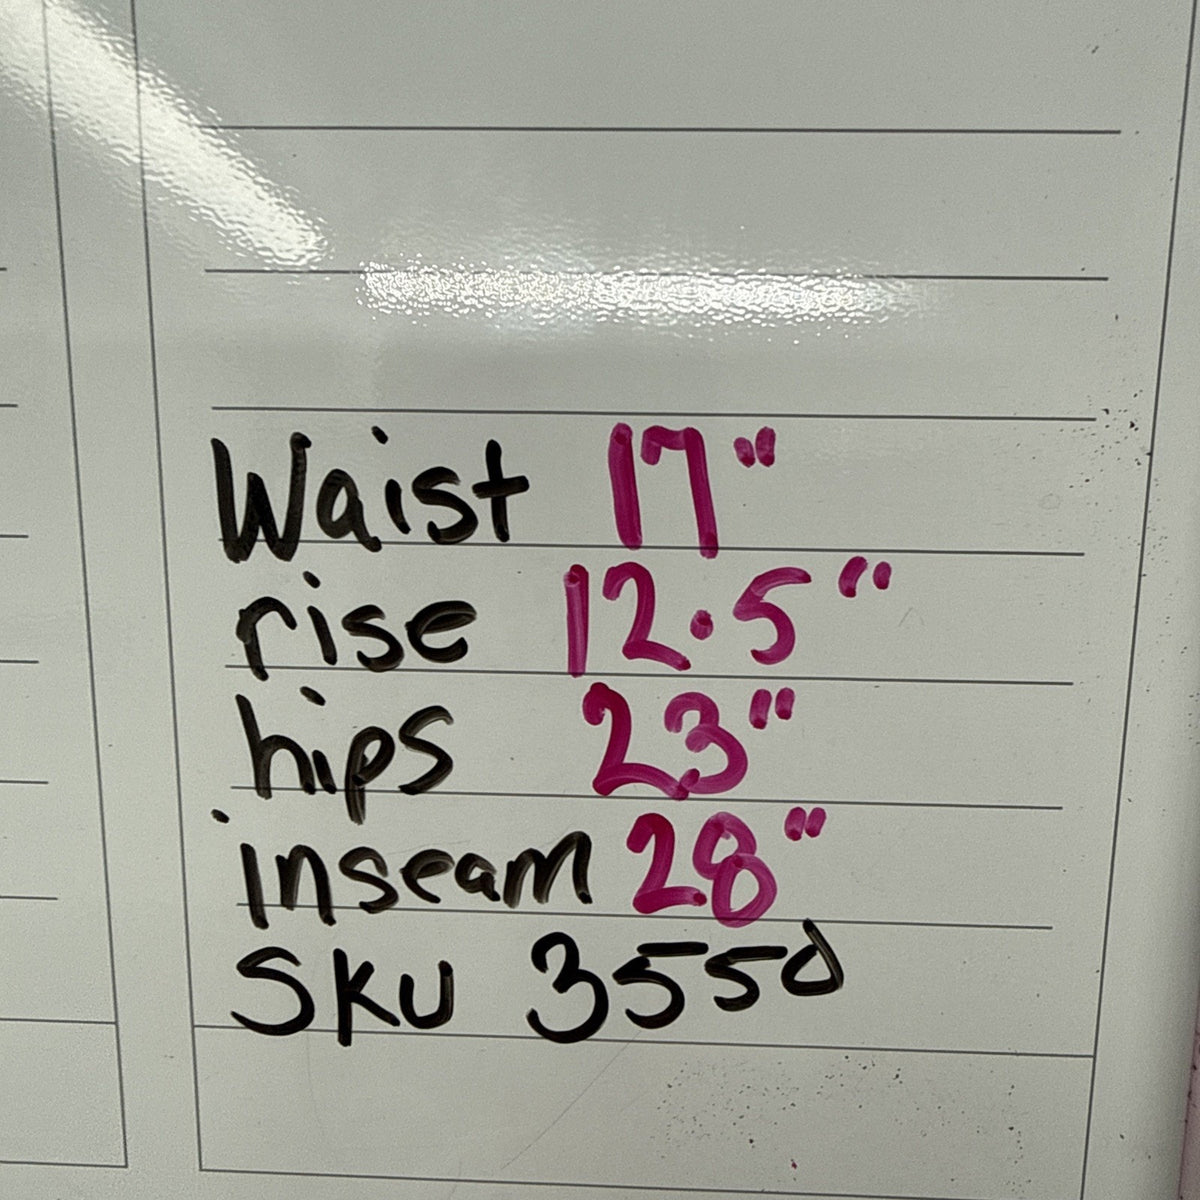 Waist 17"
rise 12.5"
hips 23"
inseam 28"
SKU 3550